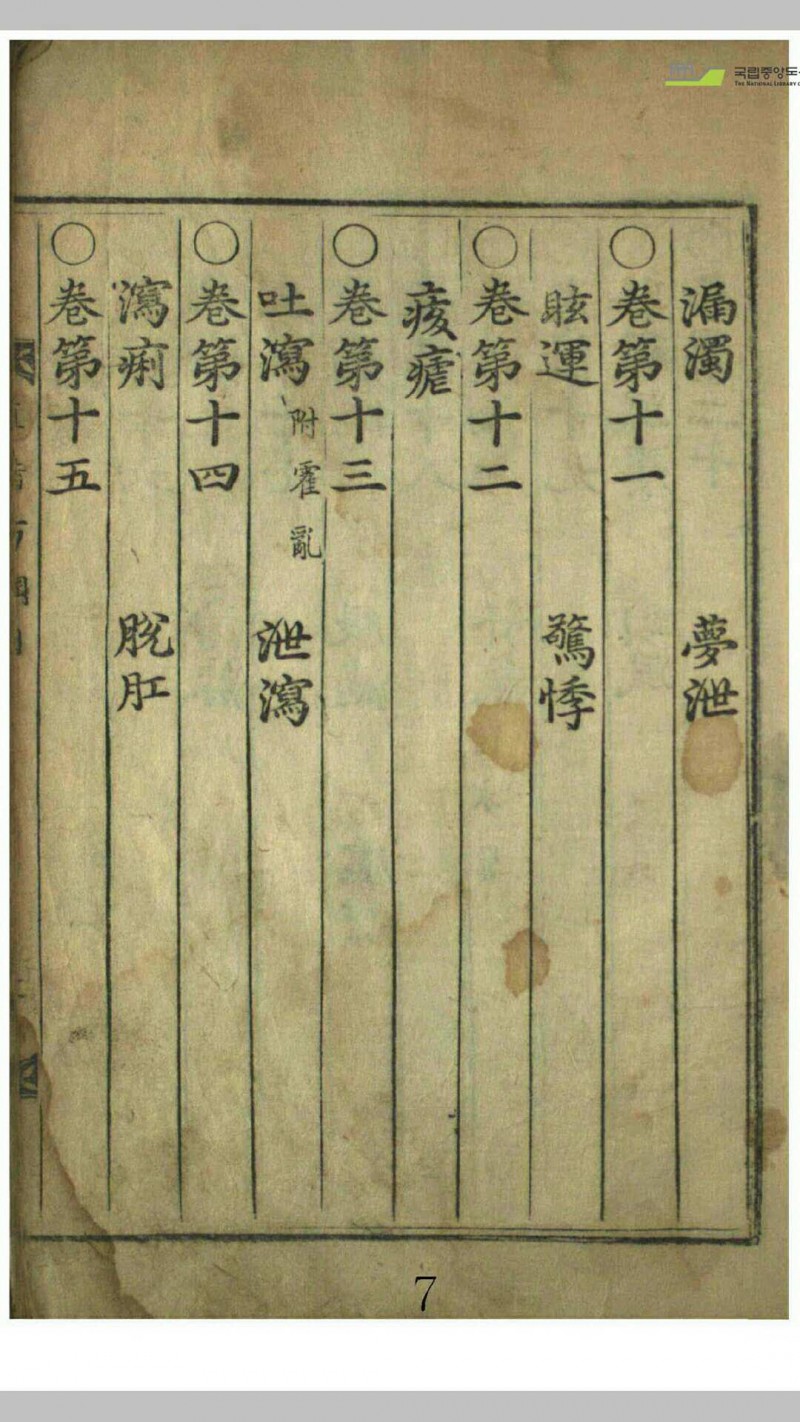 漏濁 夢泄
○卷第十一
眩運 驚悸
○卷第十二
痎瘧
○卷第十三
吐瀉 附霍亂 泄瀉
○卷第十四
瀉痢 脫肛
○卷第十五
7
국립중앙도
THE NATIONAL LIBRARY